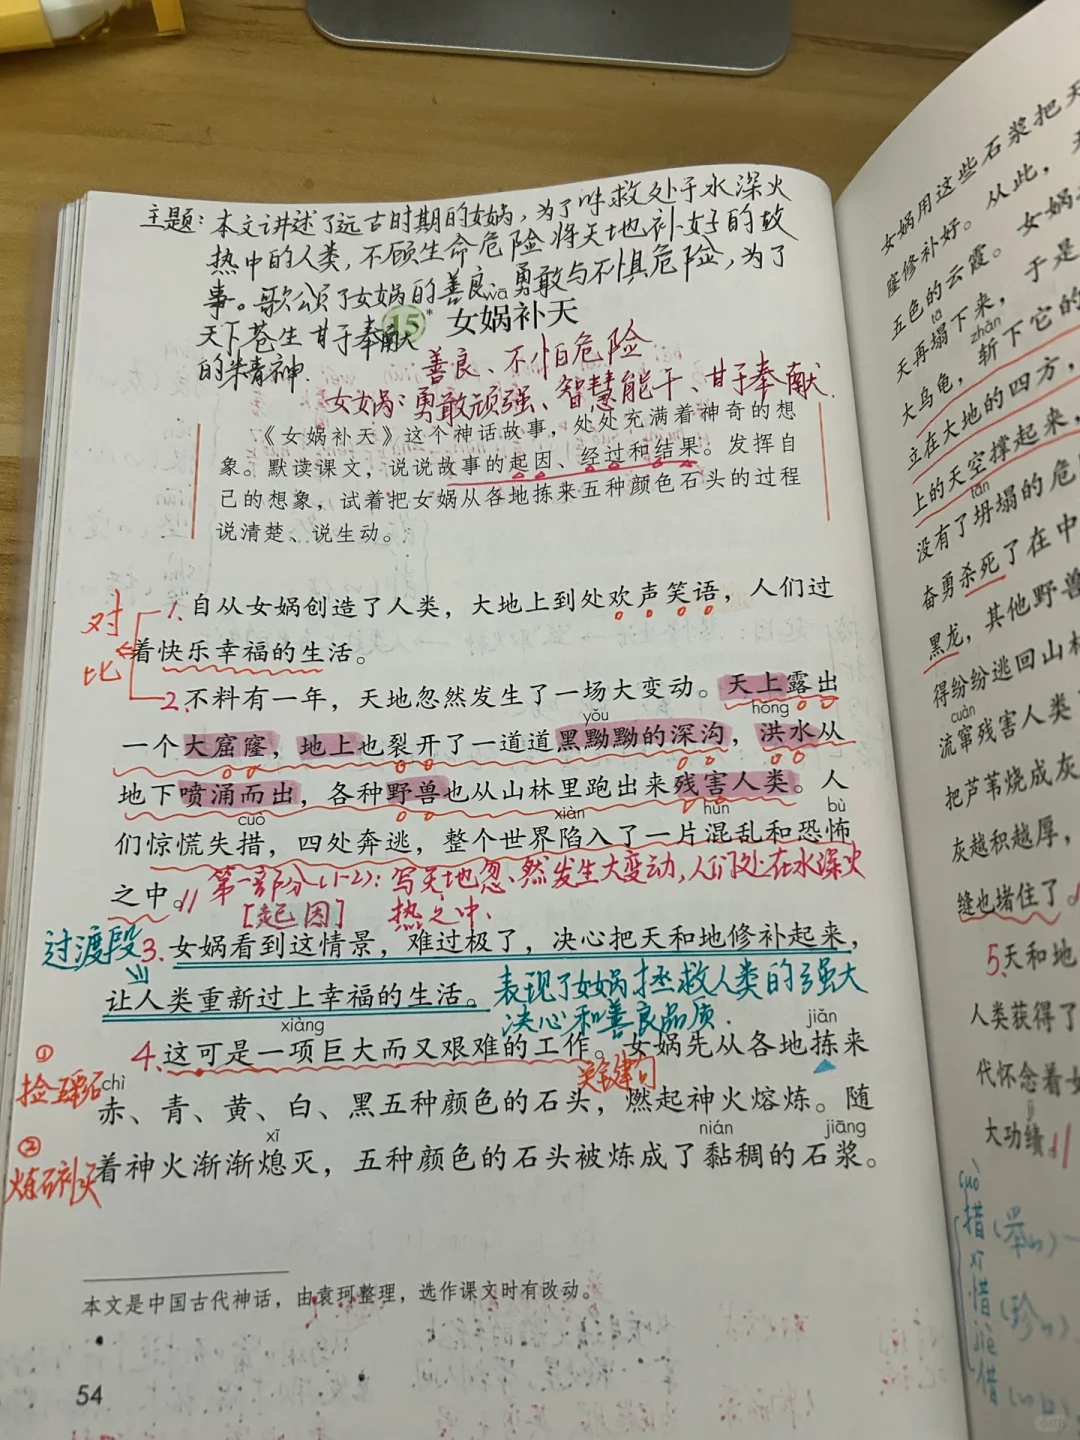 主题:本文讲述了远古时期的女娲,为了拯救处于水深火
热中的人类,不顾生命危险将天地补好的故
事。歌颂了女娲的善良、勇敢与不惧危险,为了
天下苍生甘于奉献
的精神.
wā
15* 女娲补天
善良、不怕危险
女娲:勇敢顽强、智慧能干、甘于奉献.
《女娲补天》这个神话故事,处处充满着神奇的想
象。默读课文,说说故事的起因、经过和结果。发挥自
己的想象,试着把女娲从各地拣来五种颜色石头的过程
说清楚、说生动。
对比
1. 自从女娲创造了人类,大地上到处欢声笑语,人们过
着快乐幸福的生活。
2. 不料有一年,天地忽然发生了一场大变动。天上露出
yǒu hóng
一个大窟窿,地上也裂开了一道道黑黝黝的深沟,洪水从
地下喷涌而出,各种野兽也从山林里跑出来残害人类。人
cuò xiàn hùn bù
们惊慌失措,四处奔逃,整个世界陷入了一片混乱和恐怖
之中。
第一部分(1-2):写天地忽然发生大变动,人们处在水深火
[起因] 热之中.
过渡段
3. 女娲看到这情景,难过极了,决心把天和地修补起来,
让人类重新过上幸福的生活。
表现了女娲拯救人类的强大
决心和善良品质.
xiàng jiǎn
4. 这可是一项巨大而又艰难的工作。女娲先从各地拣来
关键句
①
捡五彩石
chì
赤、青、黄、白、黑五种颜色的石头,燃起神火熔炼。随
xī nián jiāng
着神火渐渐熄灭,五种颜色的石头被炼成了黏稠的石浆。
②
炼石补天
本文是中国古代神话,由袁珂整理,选作课文时有改动。
54
女娲用这些石浆把天
窿修补好。从此,天
五色的云霞。女娲
tā
天再塌下来,于是
zhǎn
大乌龟,斩下它的
立在大地的四方,
上的天空撑起来,
tān
没有了坍塌的危
奋勇杀死了在中
黑龙,其他野兽
得纷纷逃回山林
cuàn
流窜残害人类
把芦苇烧成灰
灰越积越厚,
缝也堵住了。
5. 天和地
人类获得了
代怀念着女
jì
大功绩。
措
惜
借